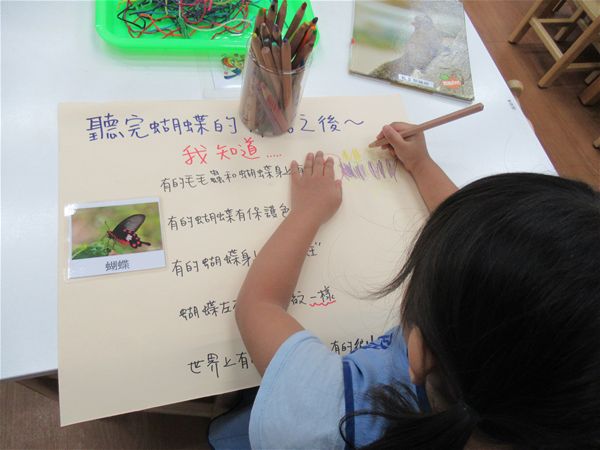 聽完蝴蝶的 之後~
我知道.....
有的毛毛蟲和蝴蝶身上
有的蝴蝶有保護色
有的蝴蝶身
蝴蝶左 一樣
世界上有 有的很
蝴蝶